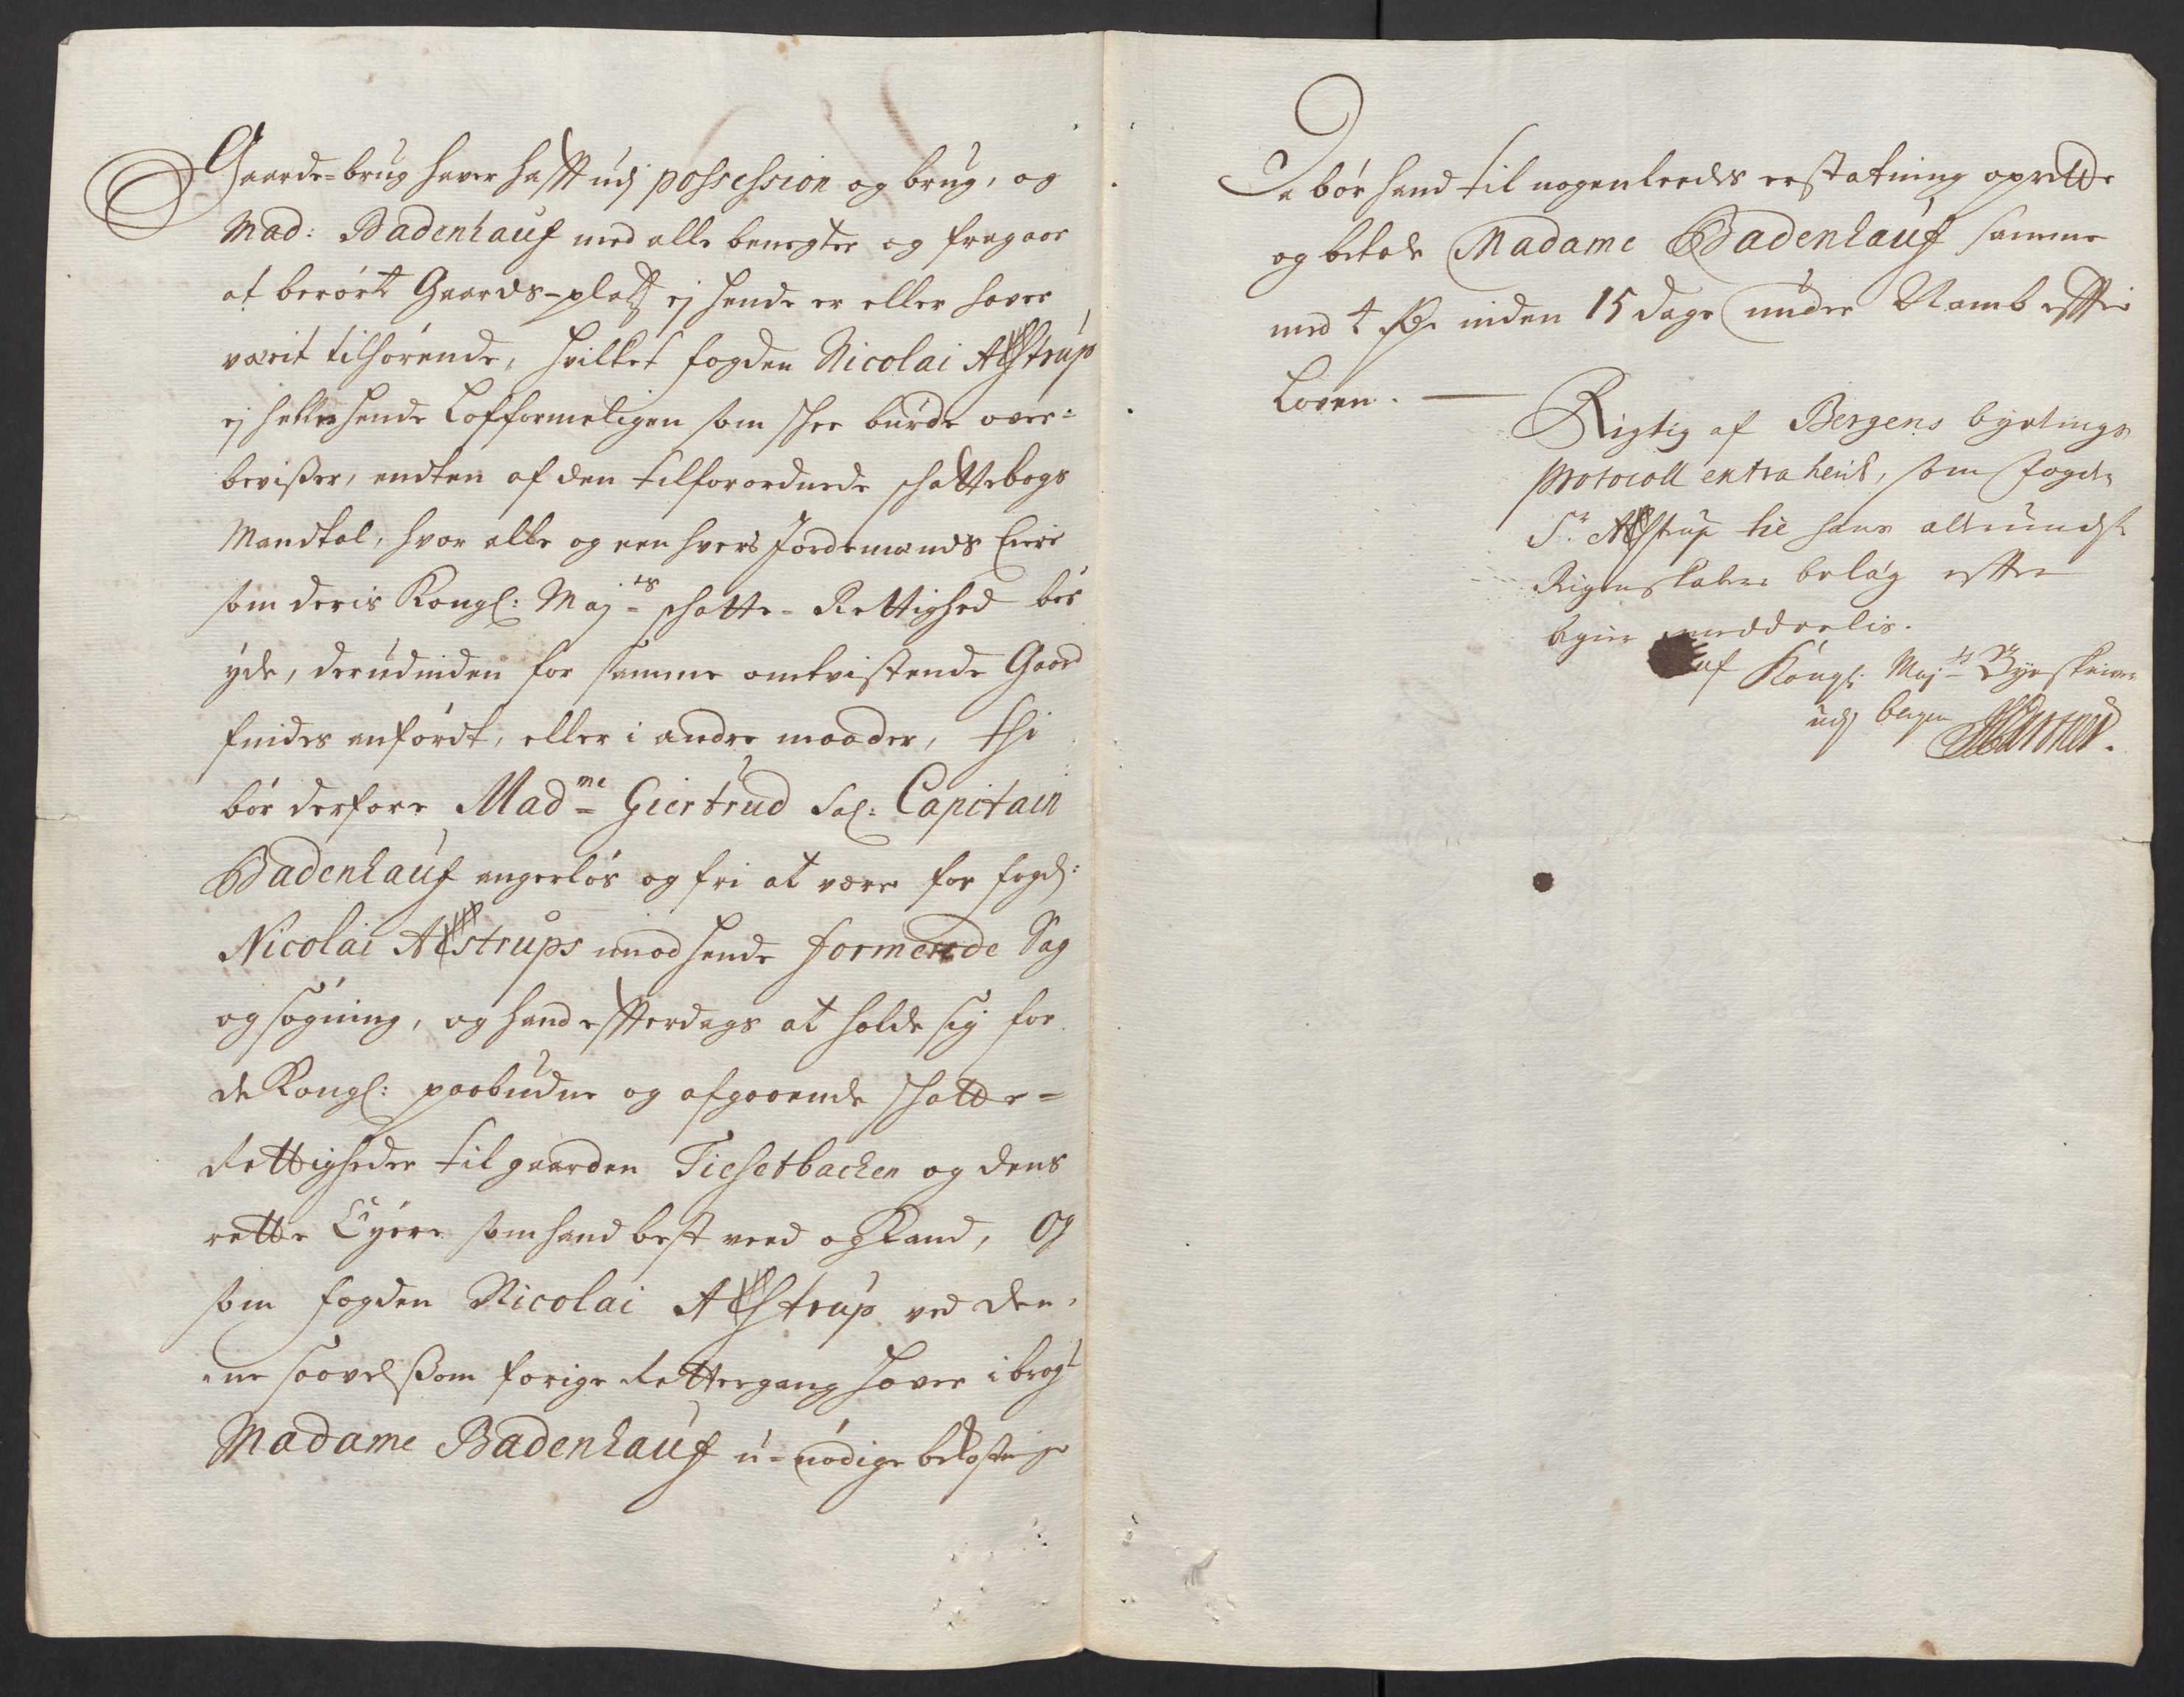 Gaarde-brug haver hafft udj possession og brug, og
Mad: Badenhauf med alle benegter og fragaar
at berørte Gaards-platz ej hende er eller haver
værit tilhørende, hvilket fogden Nicolai Alstrup
ej heller hende Lofformeligen som schee burde over-
bevißer, endten af den tilforordnede schattebogs
Mandtal, hvor alle og een hvers Jordemands Eiere
som deris Kongl: Maj:ts schatte-Rettighed bør
yde, derudinden for samme omtvistende Gaard
findes anførdt, eller i andre maader, thi
bør derfore Madme Giertrud Sal: Capitain
Badenhauf angerløs og fri at være for fogd:
Nicolai Alstrups imod hende formerede Sag
og søgning, og hand effterdags at holde sig for
de Kongl: paabudne og afgaaende schatte-
Rettigheder til gaarden Giesetbacken og dens
rette Eyere som hand best veed og Kand, Og
som fogden Nicolai Alstrup ved den-
ne saavelßom forige Rettergang haver ibragt
Madame Badenhauf u-nødige bekostninge
Da bør hand til nogenleedes erstatning oprette
og betale Madame Badenhauf samme
med 4 Rdr inden 15 dage under Namb effter
Loven.
Rigtig af Bergens byetings
Protocoll extraherit, som fogden
Sr Alstrup til hans allerundste
Rigenskabers belag effter
begier meddeelis.
af Kongl: Maj:ts Byeskriver
udj Bergen